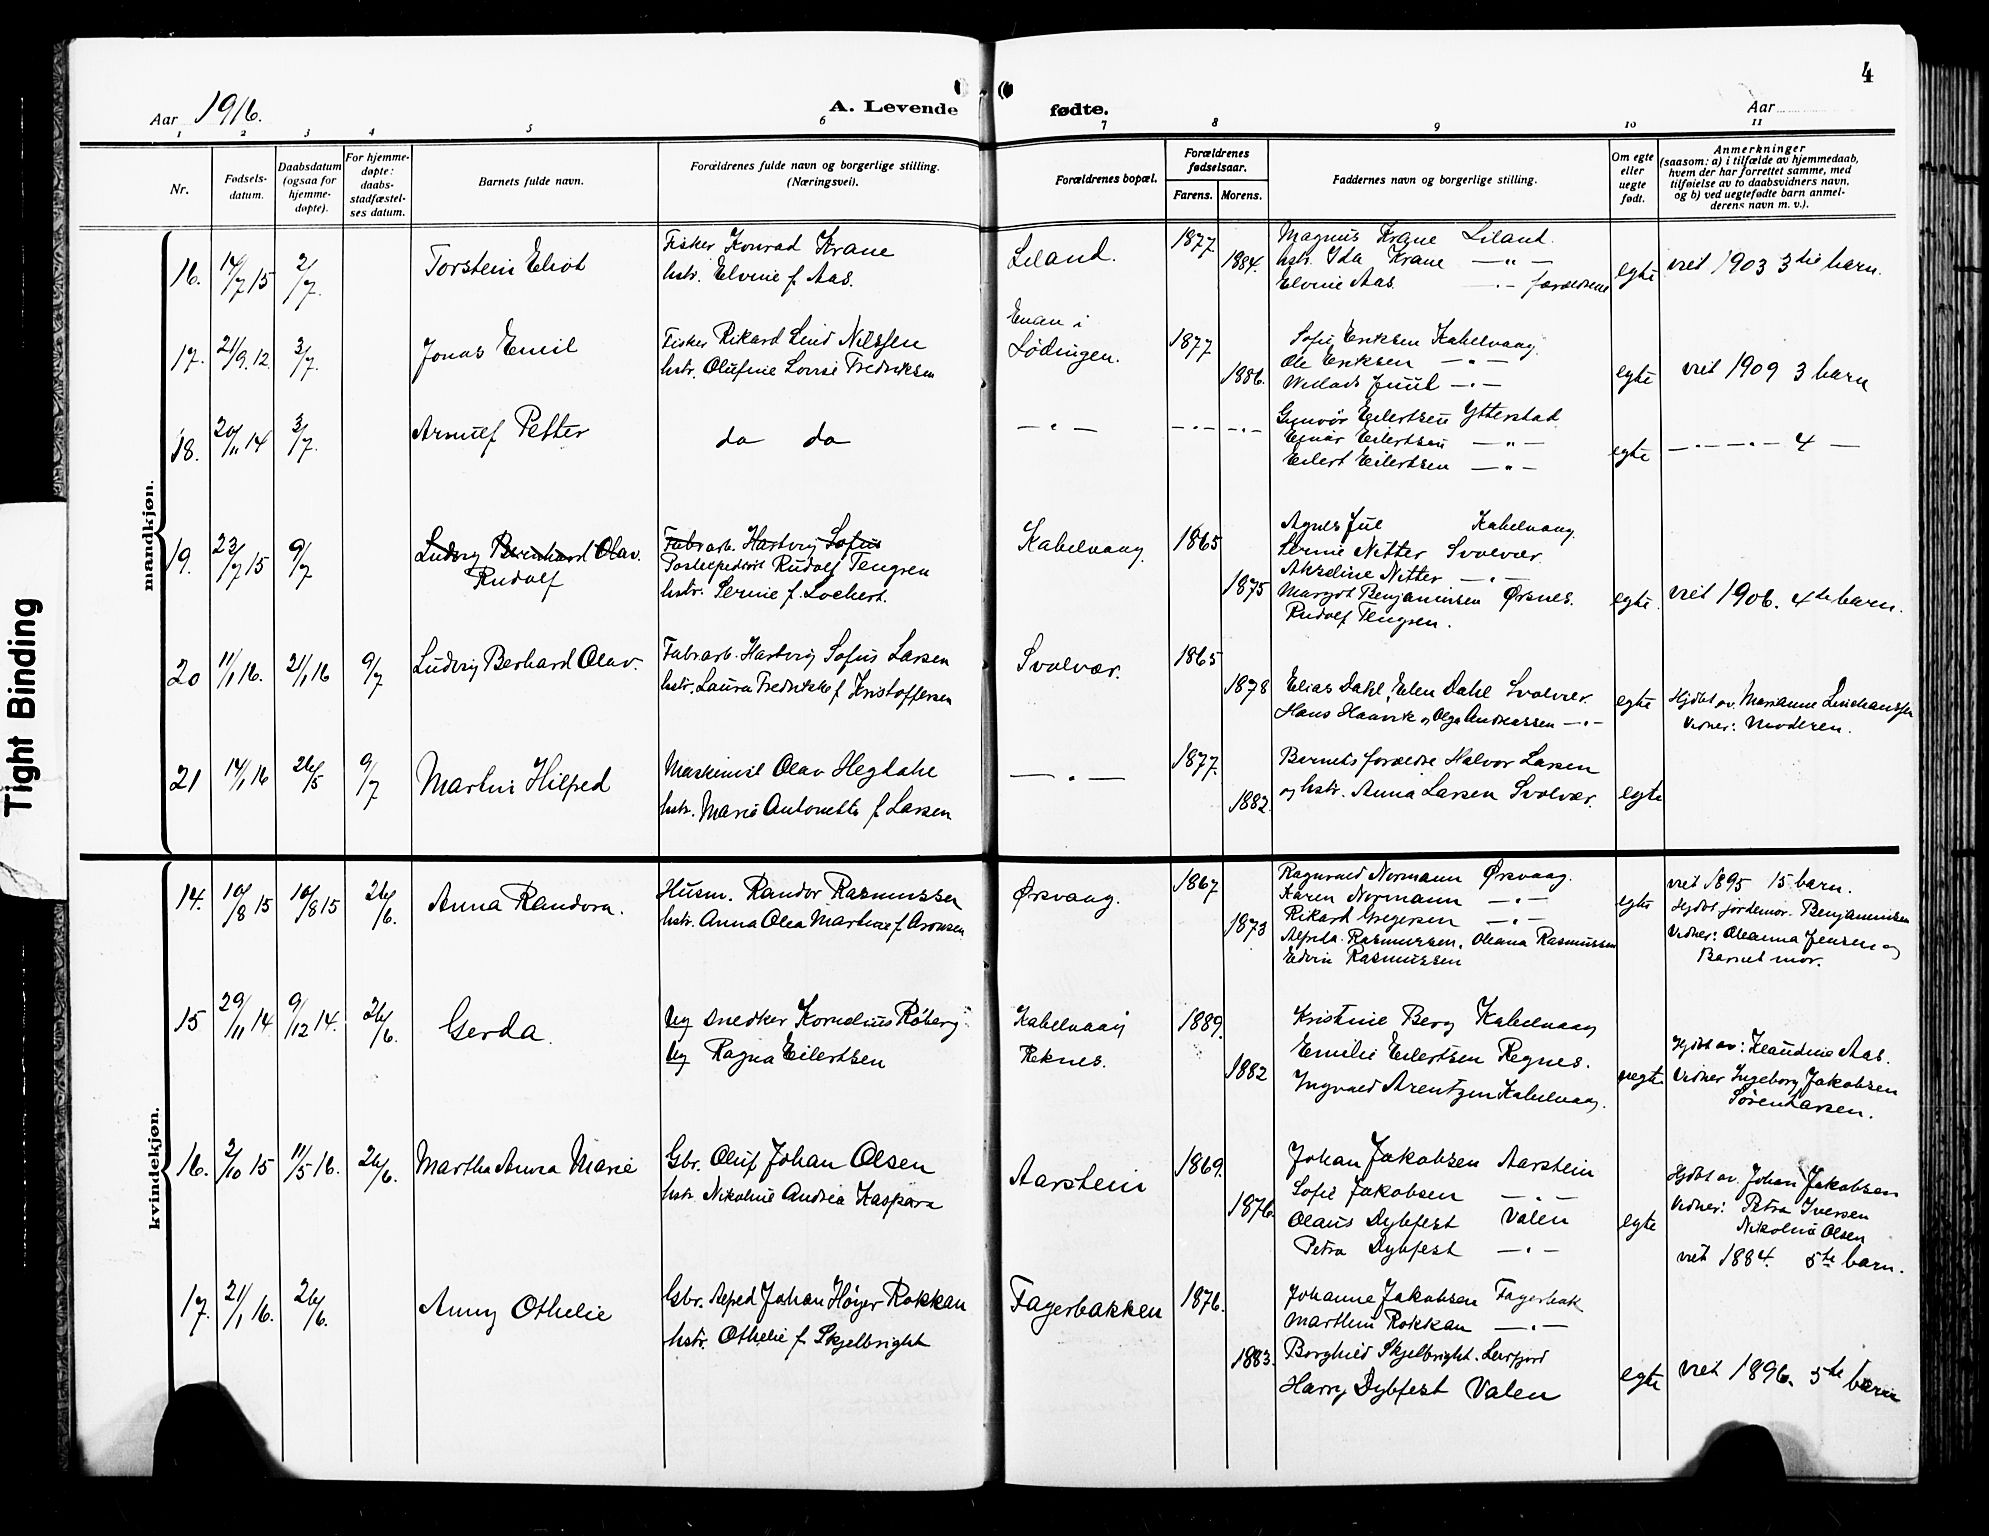 Tight Binding
4
Aar 1916.
A. Levende fødte.
Aar
1 2 3 4 5 6 7 8 9 10 11
Nr.
Fødsels-
datum.
Daabsdatum
(ogsaa for
hjemme-
døpte).
For hjemme-
døpte:
daabs-
stadfæstel-
ses datum.
Barnets fulde navn.
Forældrenes fulde navn og borgerlige stilling.
(Næringsvei).
Forældrenes bopæl.
Forældrenes
fødselsaar.
Farens. Morens.
Faddernes navn og borgerlige stilling.
Om egte
eller
uegte
født.
Anmerkninger
(saasom: a) i tilfælde av hjemmedaab,
hvem der har forrettet samme, med
tilføielse av to daabsvidners navn,
og b) ved uegtefødte barn anmel-
derens navn m. v.).
mandkjøn.
16. 14/7 15 2/7. Torstein Eliot
Fisker Konrad Krane
hstr. Elvine f. Aas.
Liland. 1877 1884.
Magnus Krane Liland.
hstr. Ida Krane — " —
Elvine Aas. — " — forældrene
egte viet 1903 3die barn.
17. 21/9 12. 3/7. Jonas Emil
Fisker Rikard Lind Nilssen
hstr. Olufine Lovise Fredriksen
Evan i
Lødingen. 1877 1886.
Sofie Eriksen Kabelvaag.
Ole Eriksen — " —
Juul — " —
egte viet 1909 3 barn
18. 20/11 14 3/7. Arnulf Petter
do do
— " — — " — — " —
Gunvør Eilertsen Ytterstad
Einar Eilertsen — " —
Eilert Eilertsen — " —
egte — " — " — 4 —
19. 23/7 15 9/7 Ludvig Bernhard Olav.
Rudolf
Fabrarb. Hartvig Sofus
Rudolf Tengren
hstr. Serine f. Lochert.
Kabelvaag. 1865 1875
Agnes Jul Kabelvaag.
Serine Nitter Svolvær.
Akseline Nitter — " —
Margot Benjaminsen Ørsnes.
Rudolf Tengren.
egte. viet 1906. 4de barn.
20 11/1 16. 21/1 16 9/7 Ludvig Berhard Olav.
Fabrarb. Hartvig Sofus Larsen
hstr. Laura Fredrikke f Kristoffersen
Svolvær. 1865 1878
Elias Dahl, Elen Dahl Svolvær.
Hans Haavik og Olga Andreassen — " —
egte Hjdbt av. Marianne
Vidner: Moderen.
21 14/1 16 26/5 9/7 Martin Hilfred
Maskinist Olav Hegdahl
hstr. Marie Antonette f Larsen
— " — 1877. 1882
Barnets forældre Halvor Larsen
og hstr. Anna Larsen Svolvær.
egte
kvindekjøn.
14. 10/8 15 10/8 15 26/6. Anna Randora.
Husm. Randor Rasmussen
hstr. Anna Olea Martine f. Aronsen
Ørsvaag. 1867 1873
Ragnvald Normann Ørsvaag.
Karen Normann — " —
Rikard Gregersen — " —
Alfrida Rasmussen, Oleana Rasmussen
Edvin Rasmussen
egte viet 1895 15 barn.
Hjdbt jordemor. Benjaminsen
Vidner: Oleanna Jensen og
Barnet mor.
15 29/11 14 9/12 14. 26/6. Gerda.
Ug Snedker Kornelius Röberg
Ug Ragna Eilertsen
Kabelvaag
Reknes. 1889. 1882
Kristine Berg Kabelvaag
Emilie Eilertsen Regnes.
Ingvald Arentzen Kabelvaag.
uegte Hjdbt av: Klaudine Aas.
Vidner Ingeborg Jakobsen
Søren Larsen.
16. 2/10 15 11/5 16. 26/6. Martha Anna Marie
Gbr. Oluf Johan Olsen
hstr. Nikoline Andrea Kaspara
Aarstein 1869. 1876.
Johan Jakobsen Aarstein
Sofie Jakobsen — " —
Olaus Dybfest Valen
Petra Dybfest — " —
egte Hjdbt av. Johan Jakobsen
Vidner: Petra Iversen
Nikoline Olsen
viet 1884. 5te barn.
17. 21/1 16. 26/6. Anny Othelie
Gbr. Alfred Johan Høyer Rokkan
hstr. Othelie f. Skjelbright
Fagerbakken 1876. 1883.
Johanne Jakobsen Fagerbak
Marthin Rokkan — " —
Borghild Skjelbright. Leirfjord
Harry Dybfest Valen
egte viet 1896. 5te barn